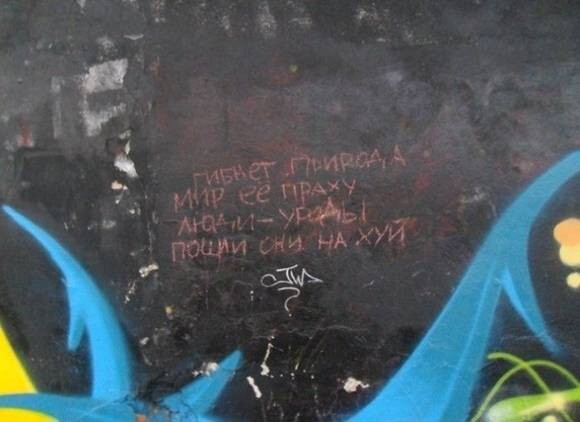 ГИБНЕТ ПРИРОДА
МИР ЕЁ ПРАХУ
ЛЮДИ – УРОДЫ
ПОШЛИ ОНИ НА ХУЙ